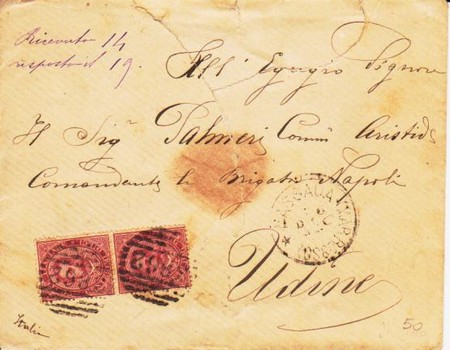 Ricevuta 14
risposto il 19.
All' Egregio Signore
Il Sig Palmeri Comm Aristide
Comandante la Brigata Napoli
Udine
Italia
50